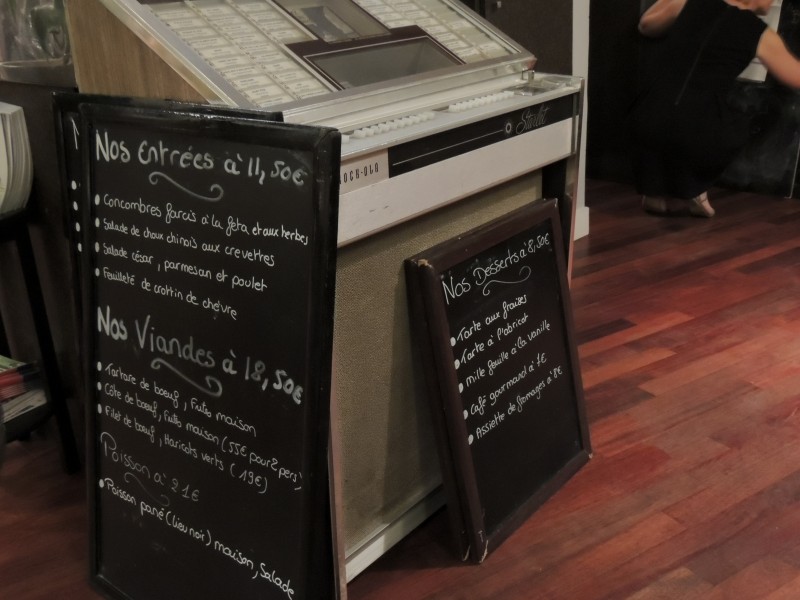 Nos Entrées à 11,50€
Concombres farcis à la feta et aux herbes
Salade de choux chinois aux crevettes
Salade césar, parmesan et poulet
Feuilleté de crottin de chèvre
Nos Viandes à 18,50€
Tartare de boeuf, Frites maison
Côte de boeuf, Frites maison (55€ pour 2 pers)
Filet de boeuf, Haricots verts (19€)
Poisson à 21€
Poisson pané (lieu noir) maison, Salade
Nos Desserts à 8,50€
Tarte aux fraises
Tarte à l'abricot
Mille feuille à la vanille
Café gourmand à 7€
Assiette de fromages à 8€